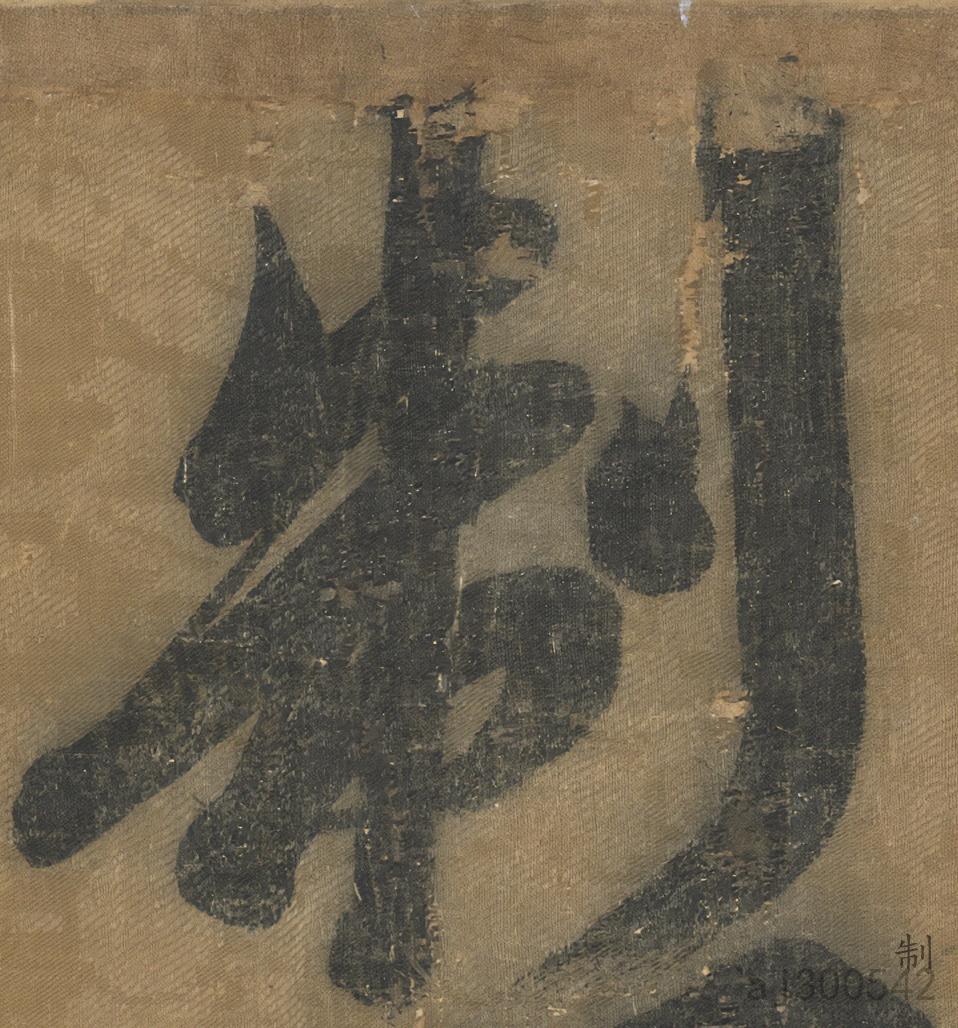 制
制
a j300542